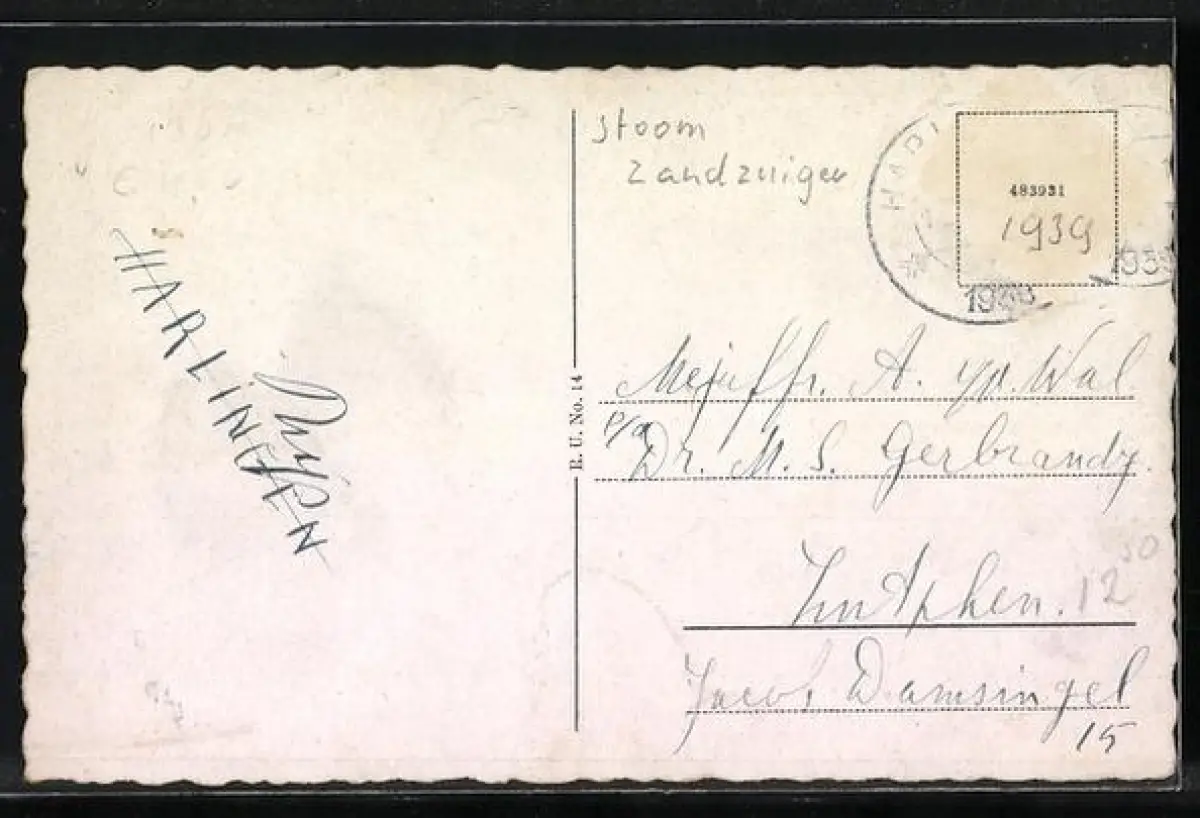 HARLINGEN
R. U. No. 14
stoom
zandzuiger
HARL
483931
1939
1939
Mejuffr. A. v/d. Wal
p/a
Dr. M. S. Gerbrandy.
Zutphen.
12 50
Jacob Damsingel
15